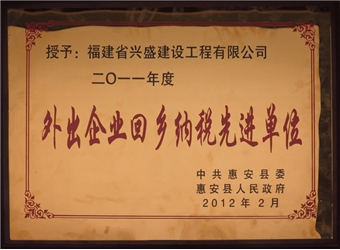 授予：福建省兴盛建设工程有限公司
二〇一一年度
外出企业回乡纳税先进单位
中共惠安县委
惠安县人民政府
2012年2月